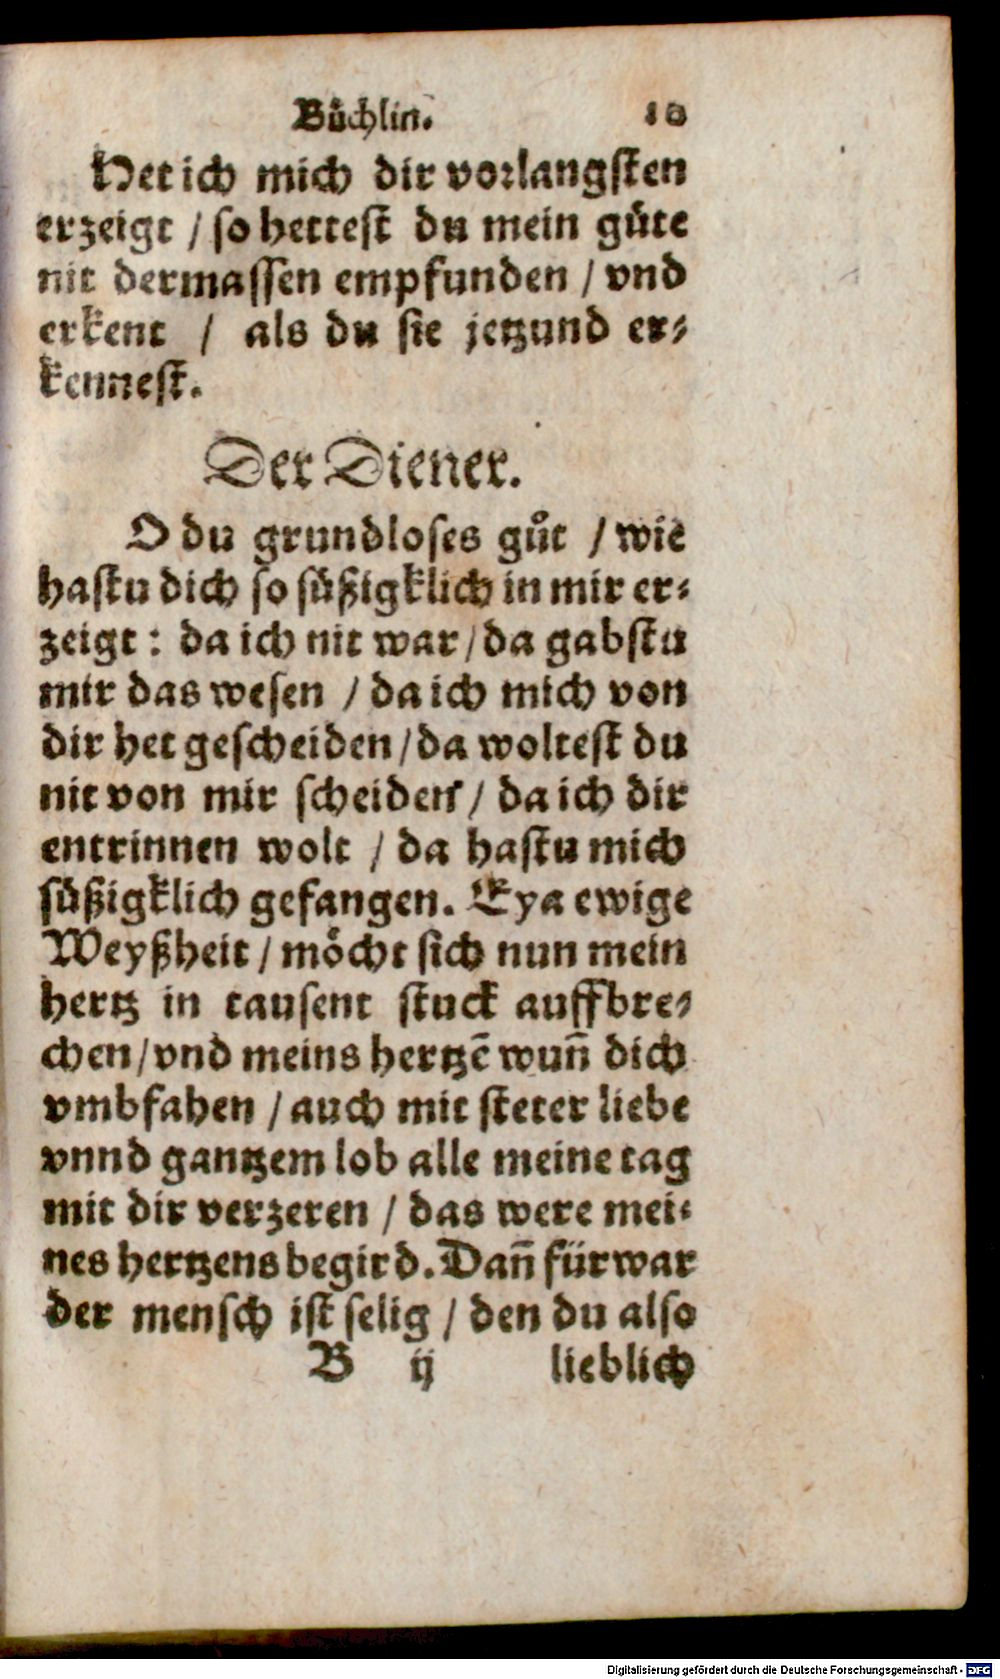 Buͤchlin. 10
Het ich mich dir vorlangsten
erzeigt / so hettest du mein guͤte
nit dermassen empfunden / vnd
erkent / als du sie jetzund er⸗
kennest.
Der Diener.
O du grundloses guͦt / wie
hastu dich so suͤßigklich in mir er⸗
zeigt: da ich nit war / da gabstu
mir das wesen / da ich mich von
dir het gescheiden / da woltest du
nit von mir scheiden / da ich dir
entrinnen wolt / da hastu mich
suͤßigklich gefangen. Eya ewige
Weyßheit / moͤcht sich nun mein
hertz in tausent stuck auffbre⸗
chen / vnd meins hertzē wun̄ dich
vmbfahen / auch mit steter liebe
vnnd gantzem lob alle meine tag
mit dir verzeren / das were mei⸗
nes hertzens begird. Dan̄ fürwar
der mensch ist selig / den du also
B ij lieblich
Digitalisierung gefördert durch die Deutsche Forschungsgemeinschaft - DFG